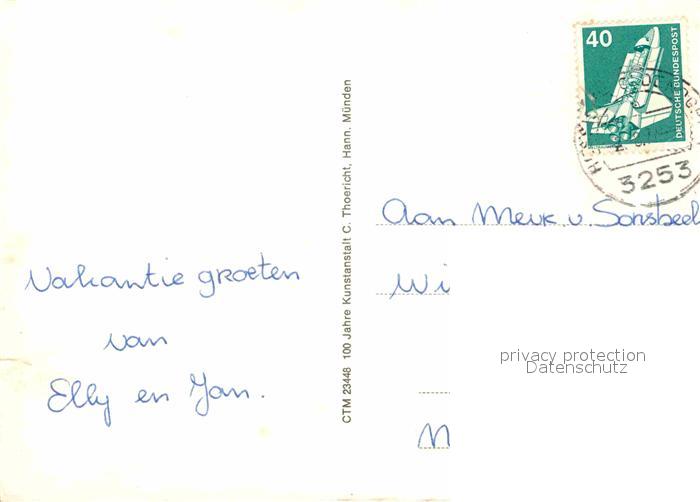 40
DEUTSCHE BUNDESPOST
3253
Vakantie groeten
van
Elly en Jan.
CTM 23448 100 Jahre Kunstanstalt C. Thoericht, Hann. Münden
Aan Mevr v. Sonsbeek
Wi
M
privacy protection
Datenschutz